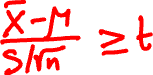 (x̄ − μ) / (s/√n) ≥ t